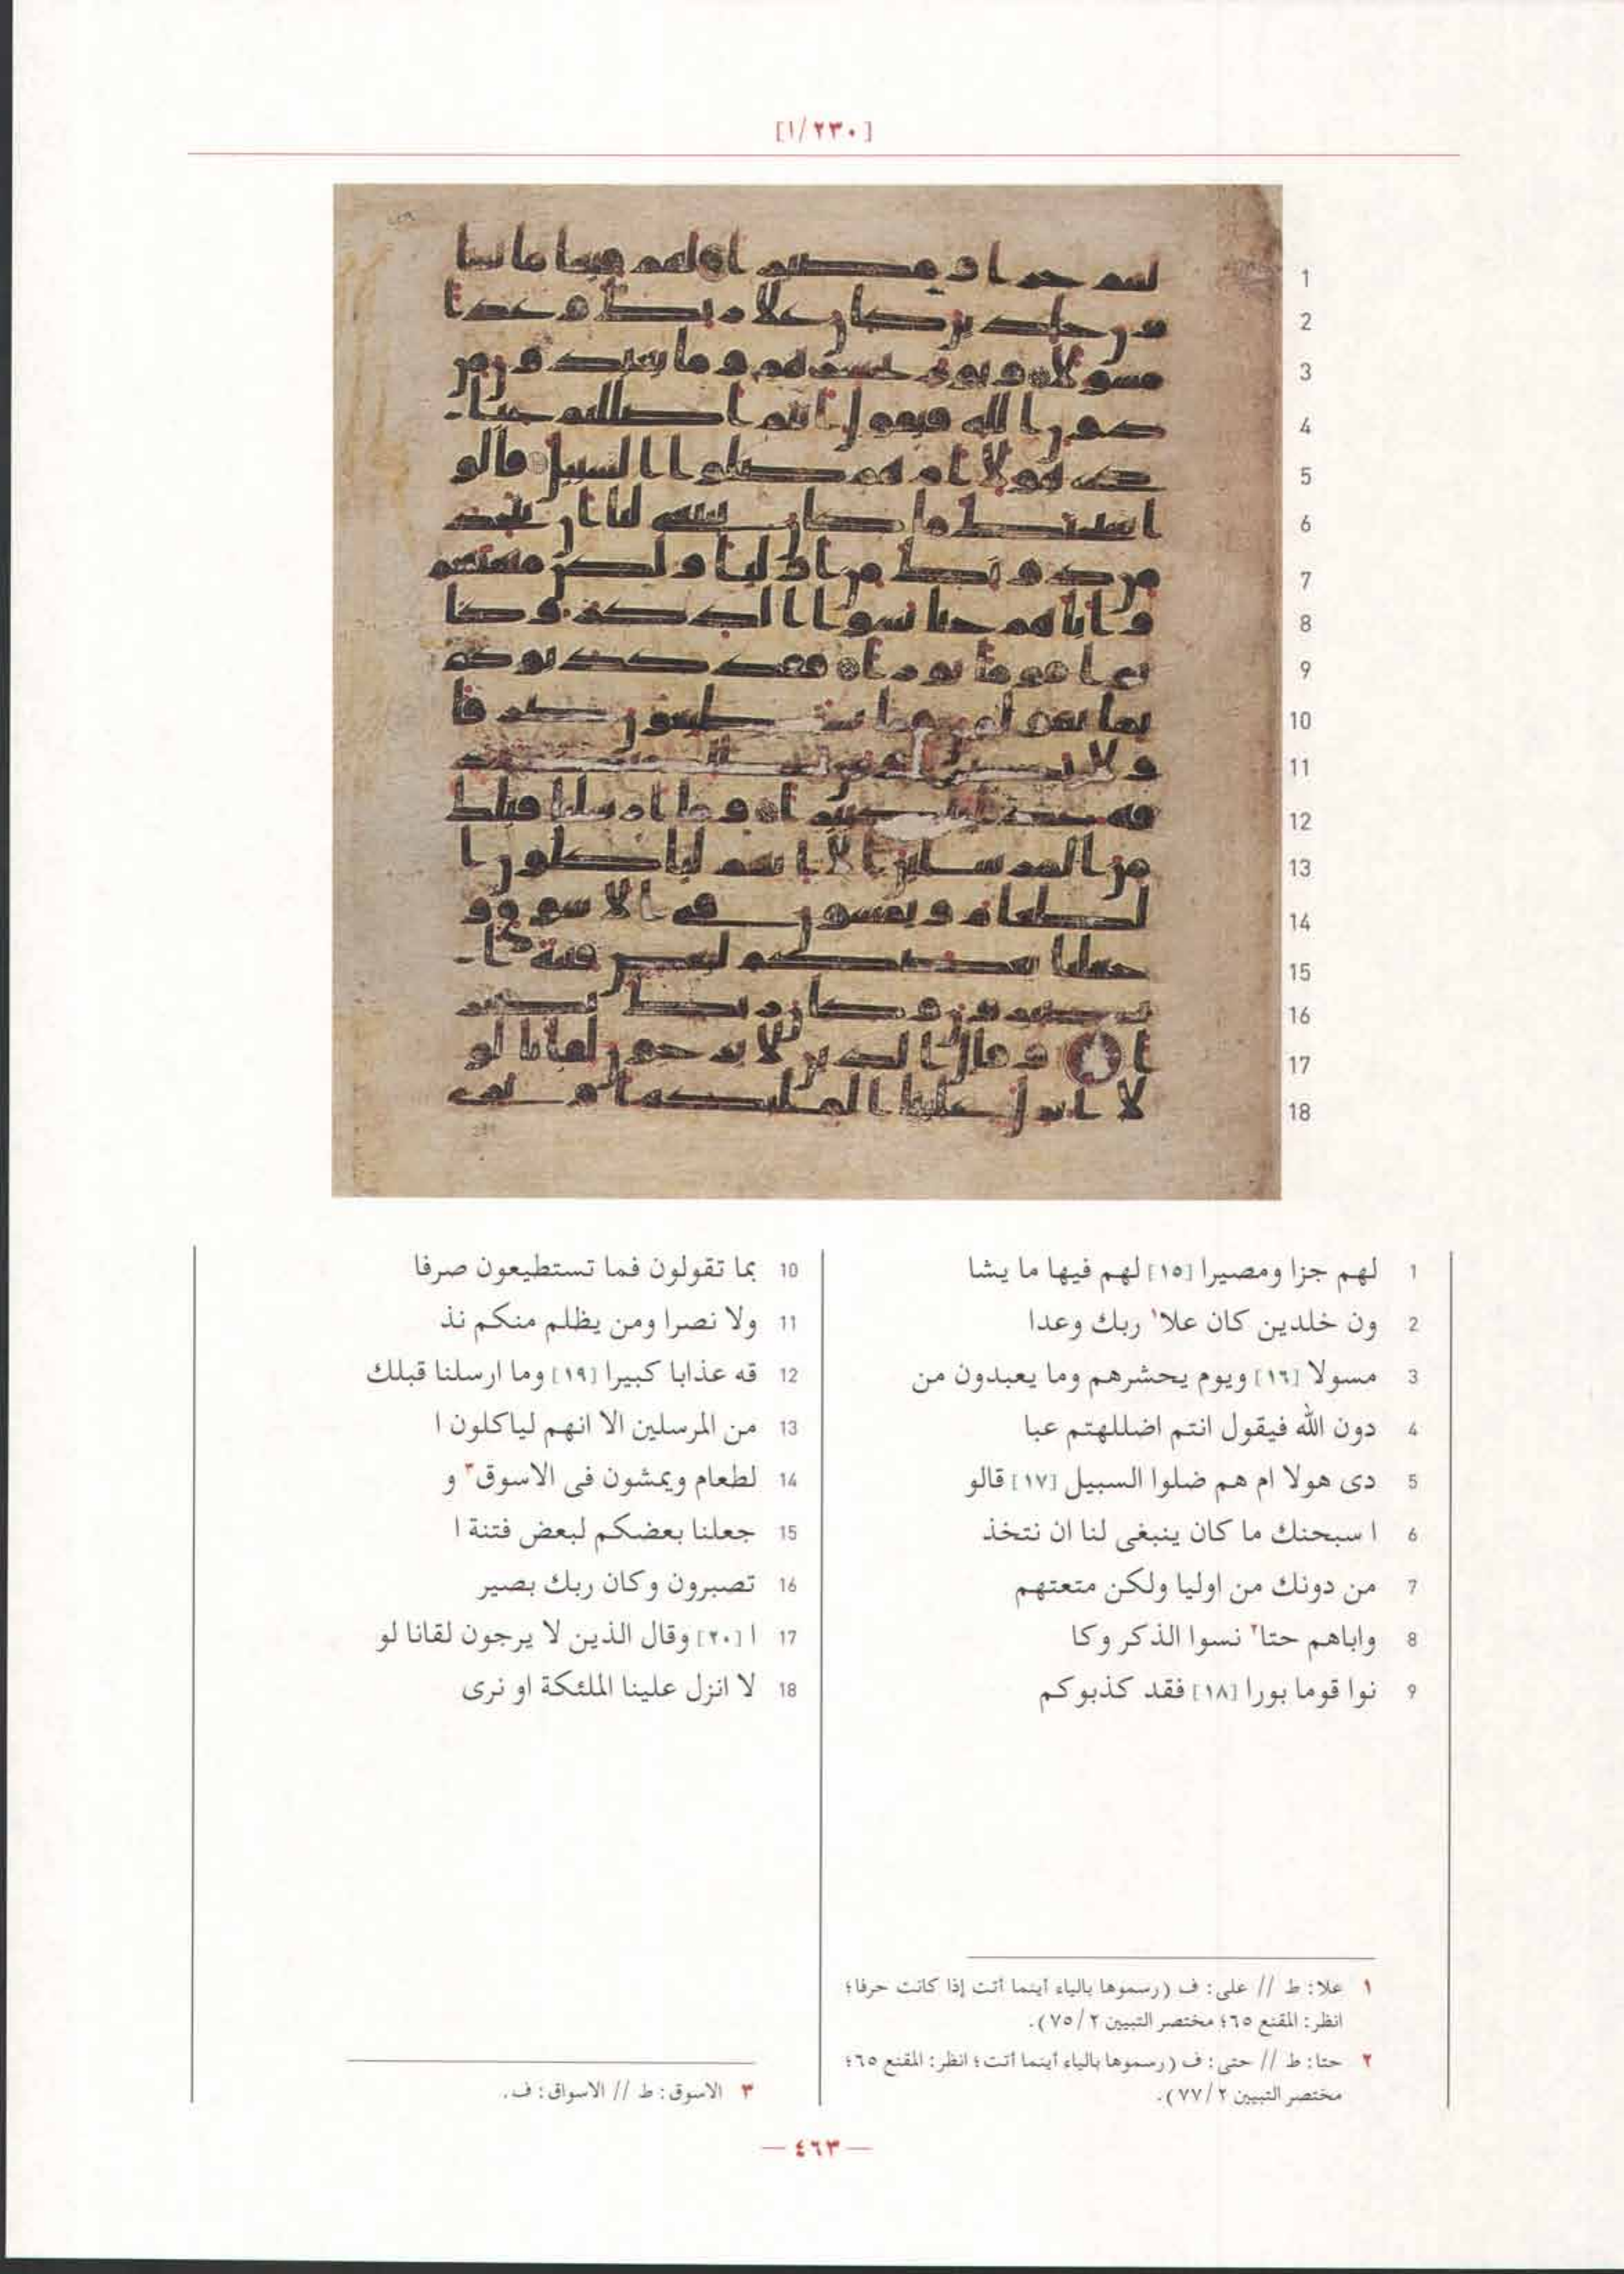 [١/٢٣٠]
1 لهم جزا ومصيرا [١٥] لهم فيها ما يشا
2 ون خلدين كان علا١ ربك وعدا
3 مسولا [١٦] ويوم يحشرهم وما يعبدون من
4 دون الله فيقول انتم اضللهتم عبا
5 دى هولا ام هم ضلوا السبيل [١٧] قالو
6 ا سبحنك ما كان ينبغى لنا ان نتخذ
7 من دونك من اوليا ولكن متعتهم
8 واباهم حتا٢ نسوا الذكر وكا
9 نوا قوما بورا [١٨] فقد كذبوكم
10 بما تقولون فما تستطيعون صرفا
11 ولا نصرا ومن يظلم منكم نذ
12 قه عذابا كبيرا [١٩] وما ارسلنا قبلك
13 من المرسلين الا انهم لياكلون ا
14 لطعام ويمشون فى الاسوق٣ و
15 جعلنا بعضكم لبعض فتنة ا
16 تصبرون وكان ربك بصير
17 ا [٢٠] وقال الذين لا يرجون لقانا لو
18 لا انزل علينا الملئكة او نرى
١ علا: ط // على: ف (رسموها بالياء أينما أتت إذا كانت حرفا؛
انظر: المقنع ٦٥؛ مختصر التبيين ٢/ ٧٥).
٢ حتا: ط // حتى: ف (رسموها بالياء أينما أتت؛ انظر: المقنع ٦٥؛
مختصر التبيين ٢/ ٧٧).
٣ الاسوق: ط // الاسواق: ف.
— ٤٦٣ —